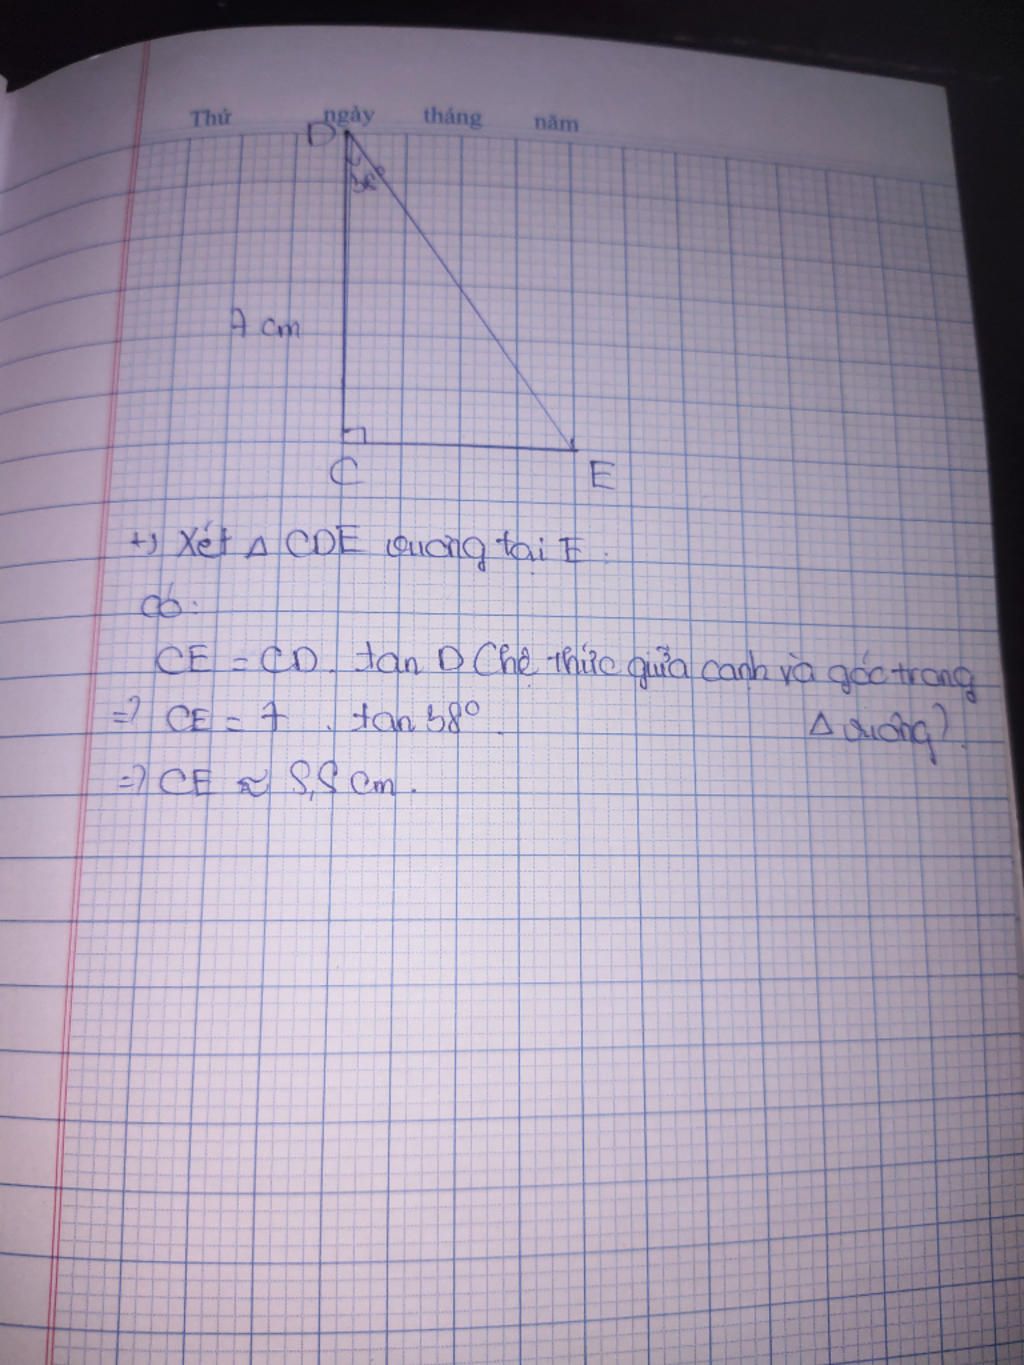 Thứ ngày tháng năm
D
38°
7 cm
C E
+) Xét Δ CDE vuông tại E.
Có:
CE = CD. tan D (hệ thức giữa cạnh và góc trong
Δ vuông).
=> CE = 7 . tan 38°.
=> CE ≈ 5,5 cm.